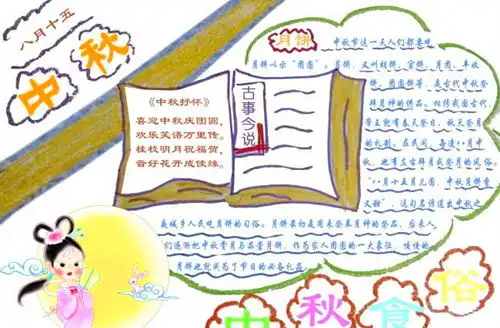 八月十五
中秋
《中秋抒怀》
喜迎中秋庆团圆,
欢乐笑语万里传。
桂枝明月祝福贺,
音好花开成佳缘。
古事今说
月饼
中秋节这一天人们都要吃
月饼以示“团圆”。月饼,又叫胡饼、宫饼、月团、丰收
饼、团圆饼等,是古代中秋祭
拜月神的供品。相传我国古代,
帝王就有春天祭日,秋天祭月
的礼制。在民间,每逢八月中
秋,也有左右拜月或祭月的风俗。
“八月十五月儿圆,中秋月饼香
又甜”,这句名谚道出中秋之
夜城乡人民吃月饼的习俗。月饼最初是用来祭奉月神的祭品,后来人
们逐渐把中秋赏月与品尝月饼,作为家人团圆的一大象征,慢慢的
月饼也就成为了节日的必备礼品。
中秋食俗